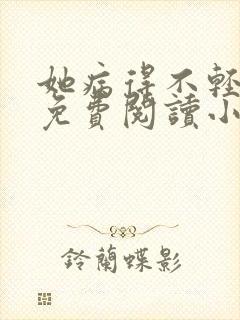 她病得不輕
免費閱讀小
鈴蘭蝶影